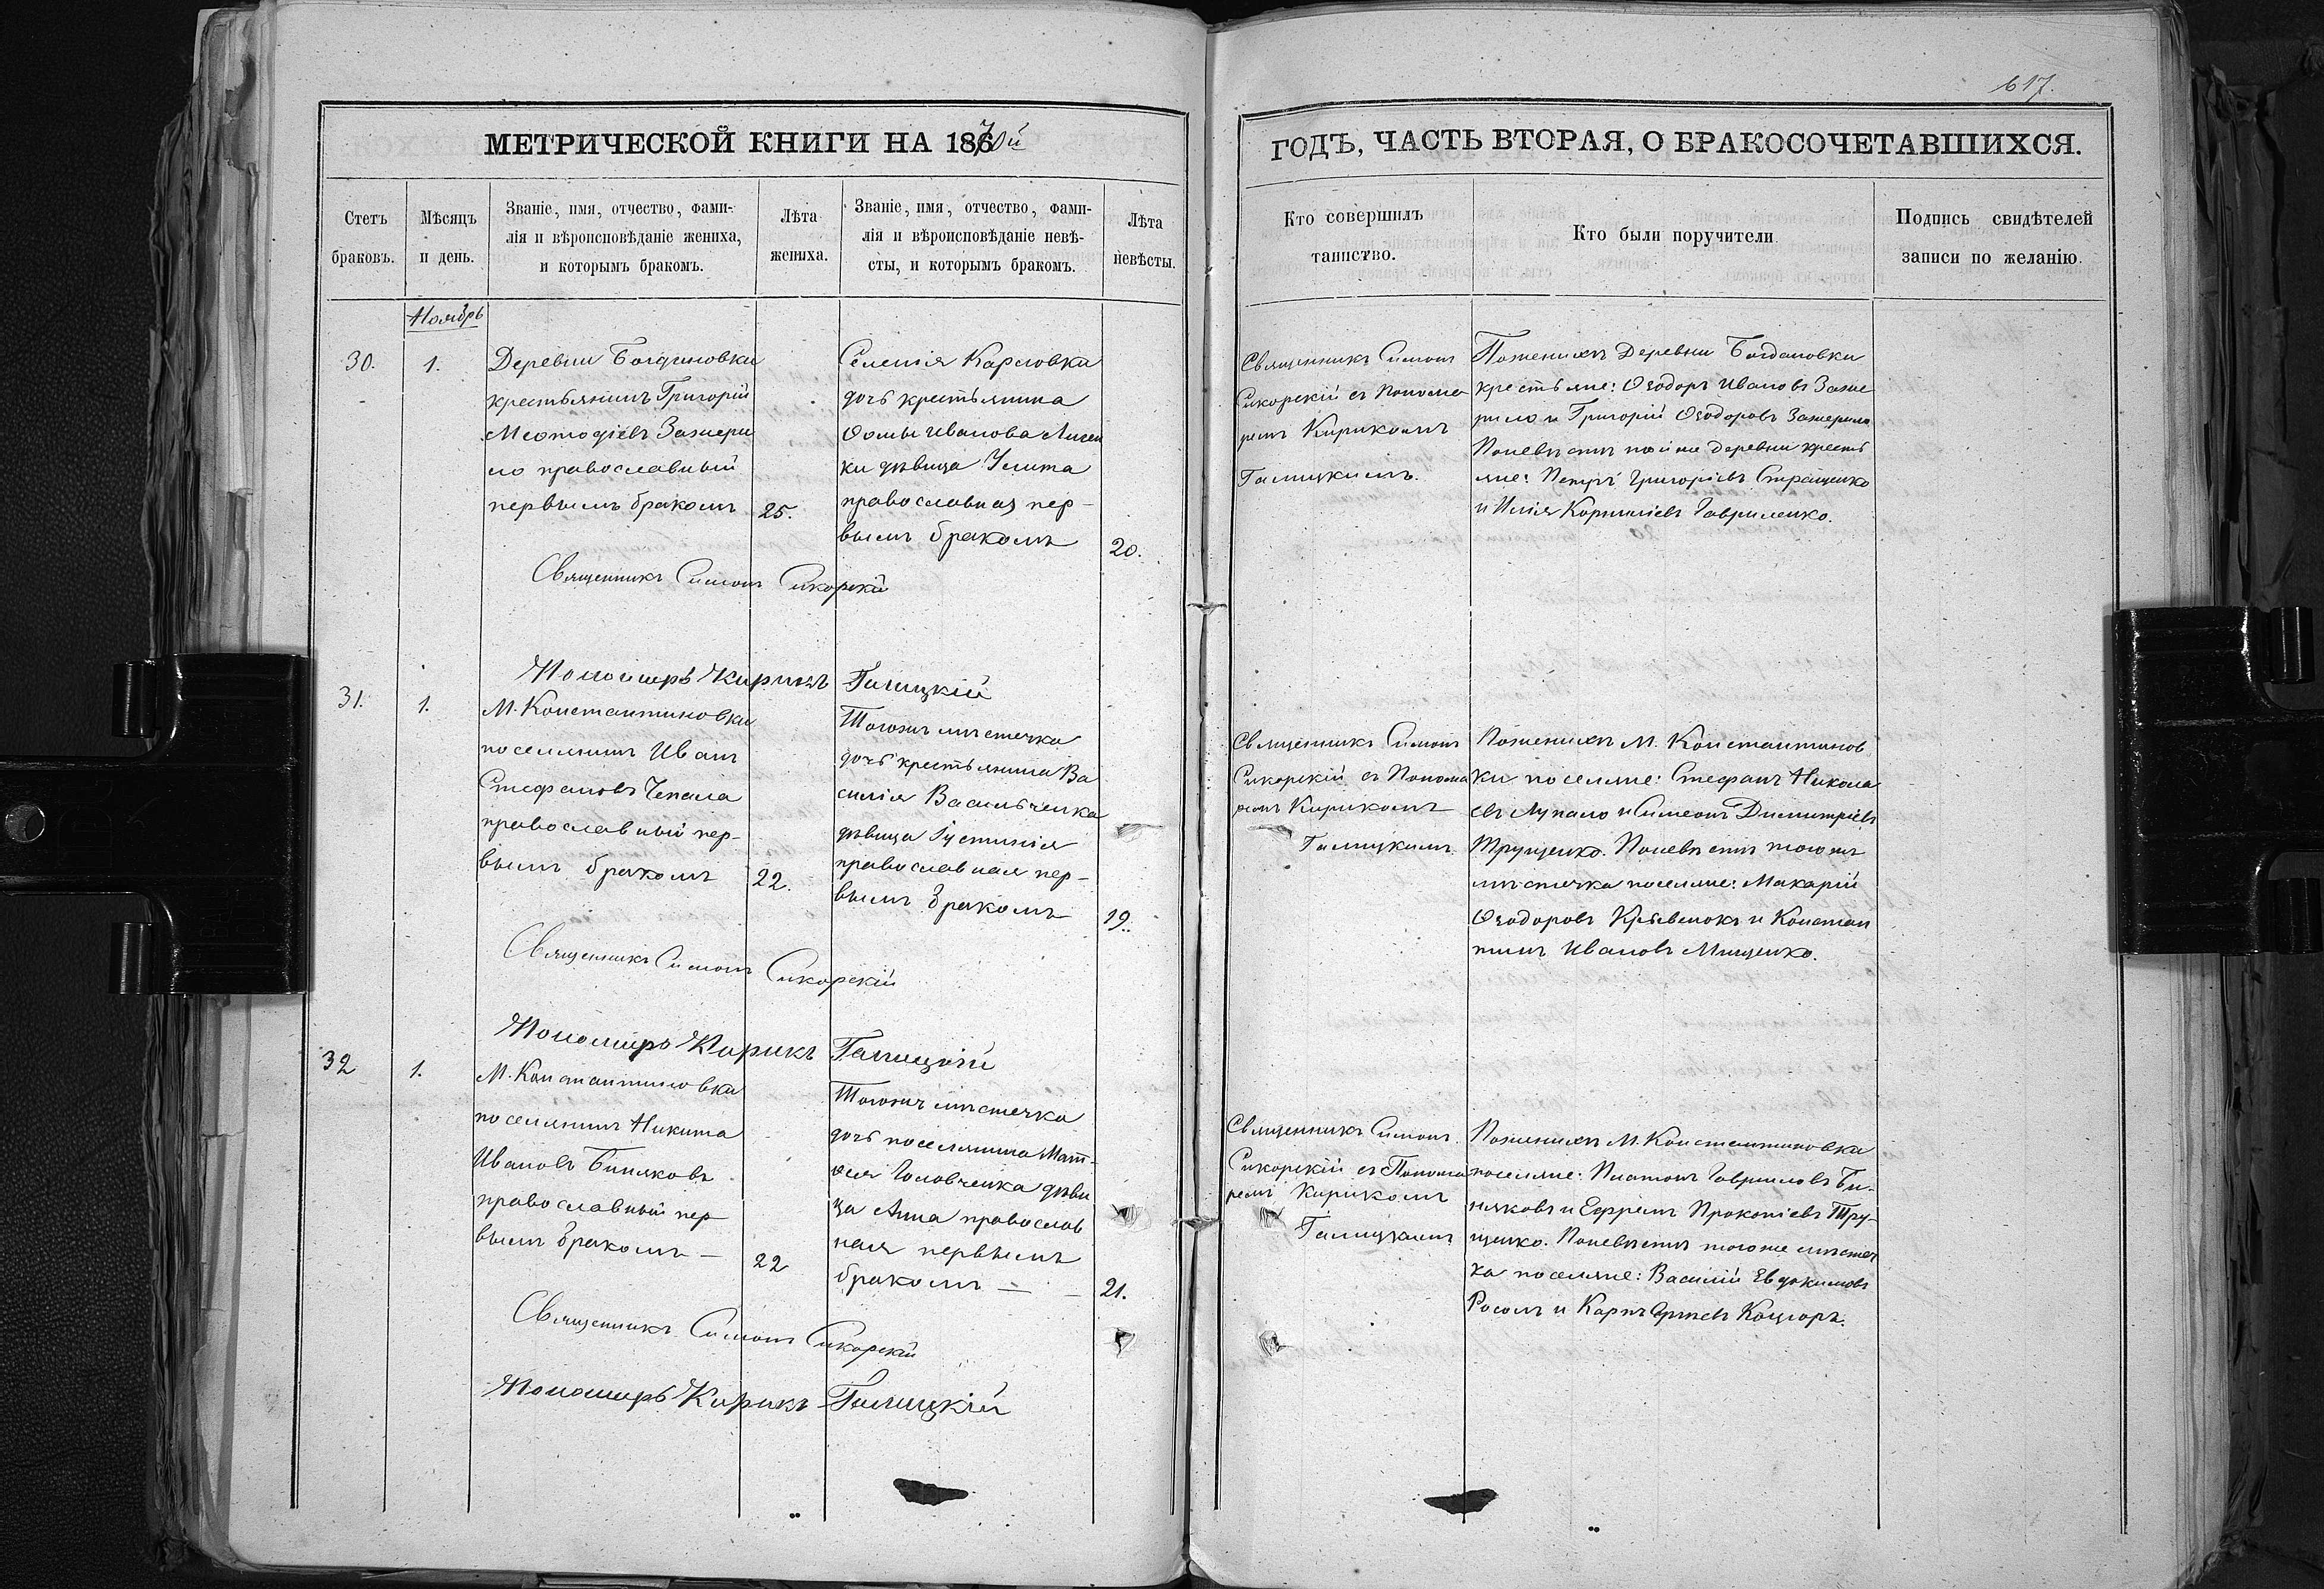 617.
МЕТРИЧЕСКОЙ КНИГИ НА 1870й
ГОДЪ, ЧАСТЬ ВТОРАЯ, О БРАКОСОЧЕТАВШИХСЯ.
Счетъ
браковъ.
Мѣсяцъ
и день.
Званіе, имя, отчество, фами-
лія и вѣроисповѣданіе жениха,
и которымъ бракомъ.
Лѣта
жениха.
Званіе, имя, отчество, фами-
лія и вѣроисповѣданіе невѣ-
сты, и которымъ бракомъ.
Лѣта
невѣсты.
Кто совершилъ
таинство.
Кто были поручители.
Подпись свидѣтелей
записи по желанію.
Ноябрь
30.
1.
Деревни Богдановки
крестьянинъ Григорій
Меѳодіевъ Зажери
ло православный
первымъ бракомъ
25.
Селенія Карловки
дочь крестьянина
Ѳомы Иванова
ки дѣвица Улита
православная пер-
вымъ бракомъ
20.
Священникъ Симонъ
Сикорскій съ Понома
ремъ Кирикомъ
Галицкимъ.
По женихѣ Деревни Богдановки
крестьяне: Ѳеодоръ Ивановъ Заже
рило и Григорій Ѳеодоровъ Зажерило
По невѣстѣ той же деревни кресть
яне: Петръ Григоріевъ Стращенко
и Илія Корниліевъ Гавриленко.
Священникъ Симонъ Сикорскій
Пономарь Кирикъ Галицкій
31.
1.
М. Константиновки
поселянинъ Иванъ
Стефановъ Чепала
православный пер-
вымъ бракомъ
22.
Тогожъ мѣстечка
дочь крестьянина Ва
силія Васильченка
дѣвица Іустинія
православная пер-
вымъ бракомъ
19.
Священникъ Симонъ
Сикорскій съ Понома
ремъ Кирикомъ
Галицкимъ.
По женихѣ М. Константинов
ки поселяне: Стефанъ Никола
евъ Лупало и Симеонъ Димитріевъ
Трущенко. По невѣстѣ тогожъ
мѣстечка поселяне: Макарій
Ѳеодоровъ и Констан
тинъ Ивановъ Мищенко.
Священникъ Симонъ Сикорскій
Пономарь Кирикъ Галицкій
32
1.
М. Константиновки
поселянинъ Никита
Ивановъ Биняковъ
православный пер
вымъ бракомъ —
22
Тогожъ мѣстечка
дочь поселянина Мат-
ѳея Головченка дѣви
ца Анна православ
ная первымъ
бракомъ —
21.
Священникъ Симонъ
Сикорскій съ Понома
ремъ Кирикомъ
Галицкимъ
По женихѣ М. Константиновки
поселяне: Платонъ Гавриловъ Би-
няковъ и Ефремъ Прокопіевъ Тру-
щенко. По невѣстѣ тогоже мѣстеч
ка поселяне: Василій Евдокимовъ
и Карпъ
Священникъ Симонъ Сикорскій
Пономарь Кирикъ Галицкій